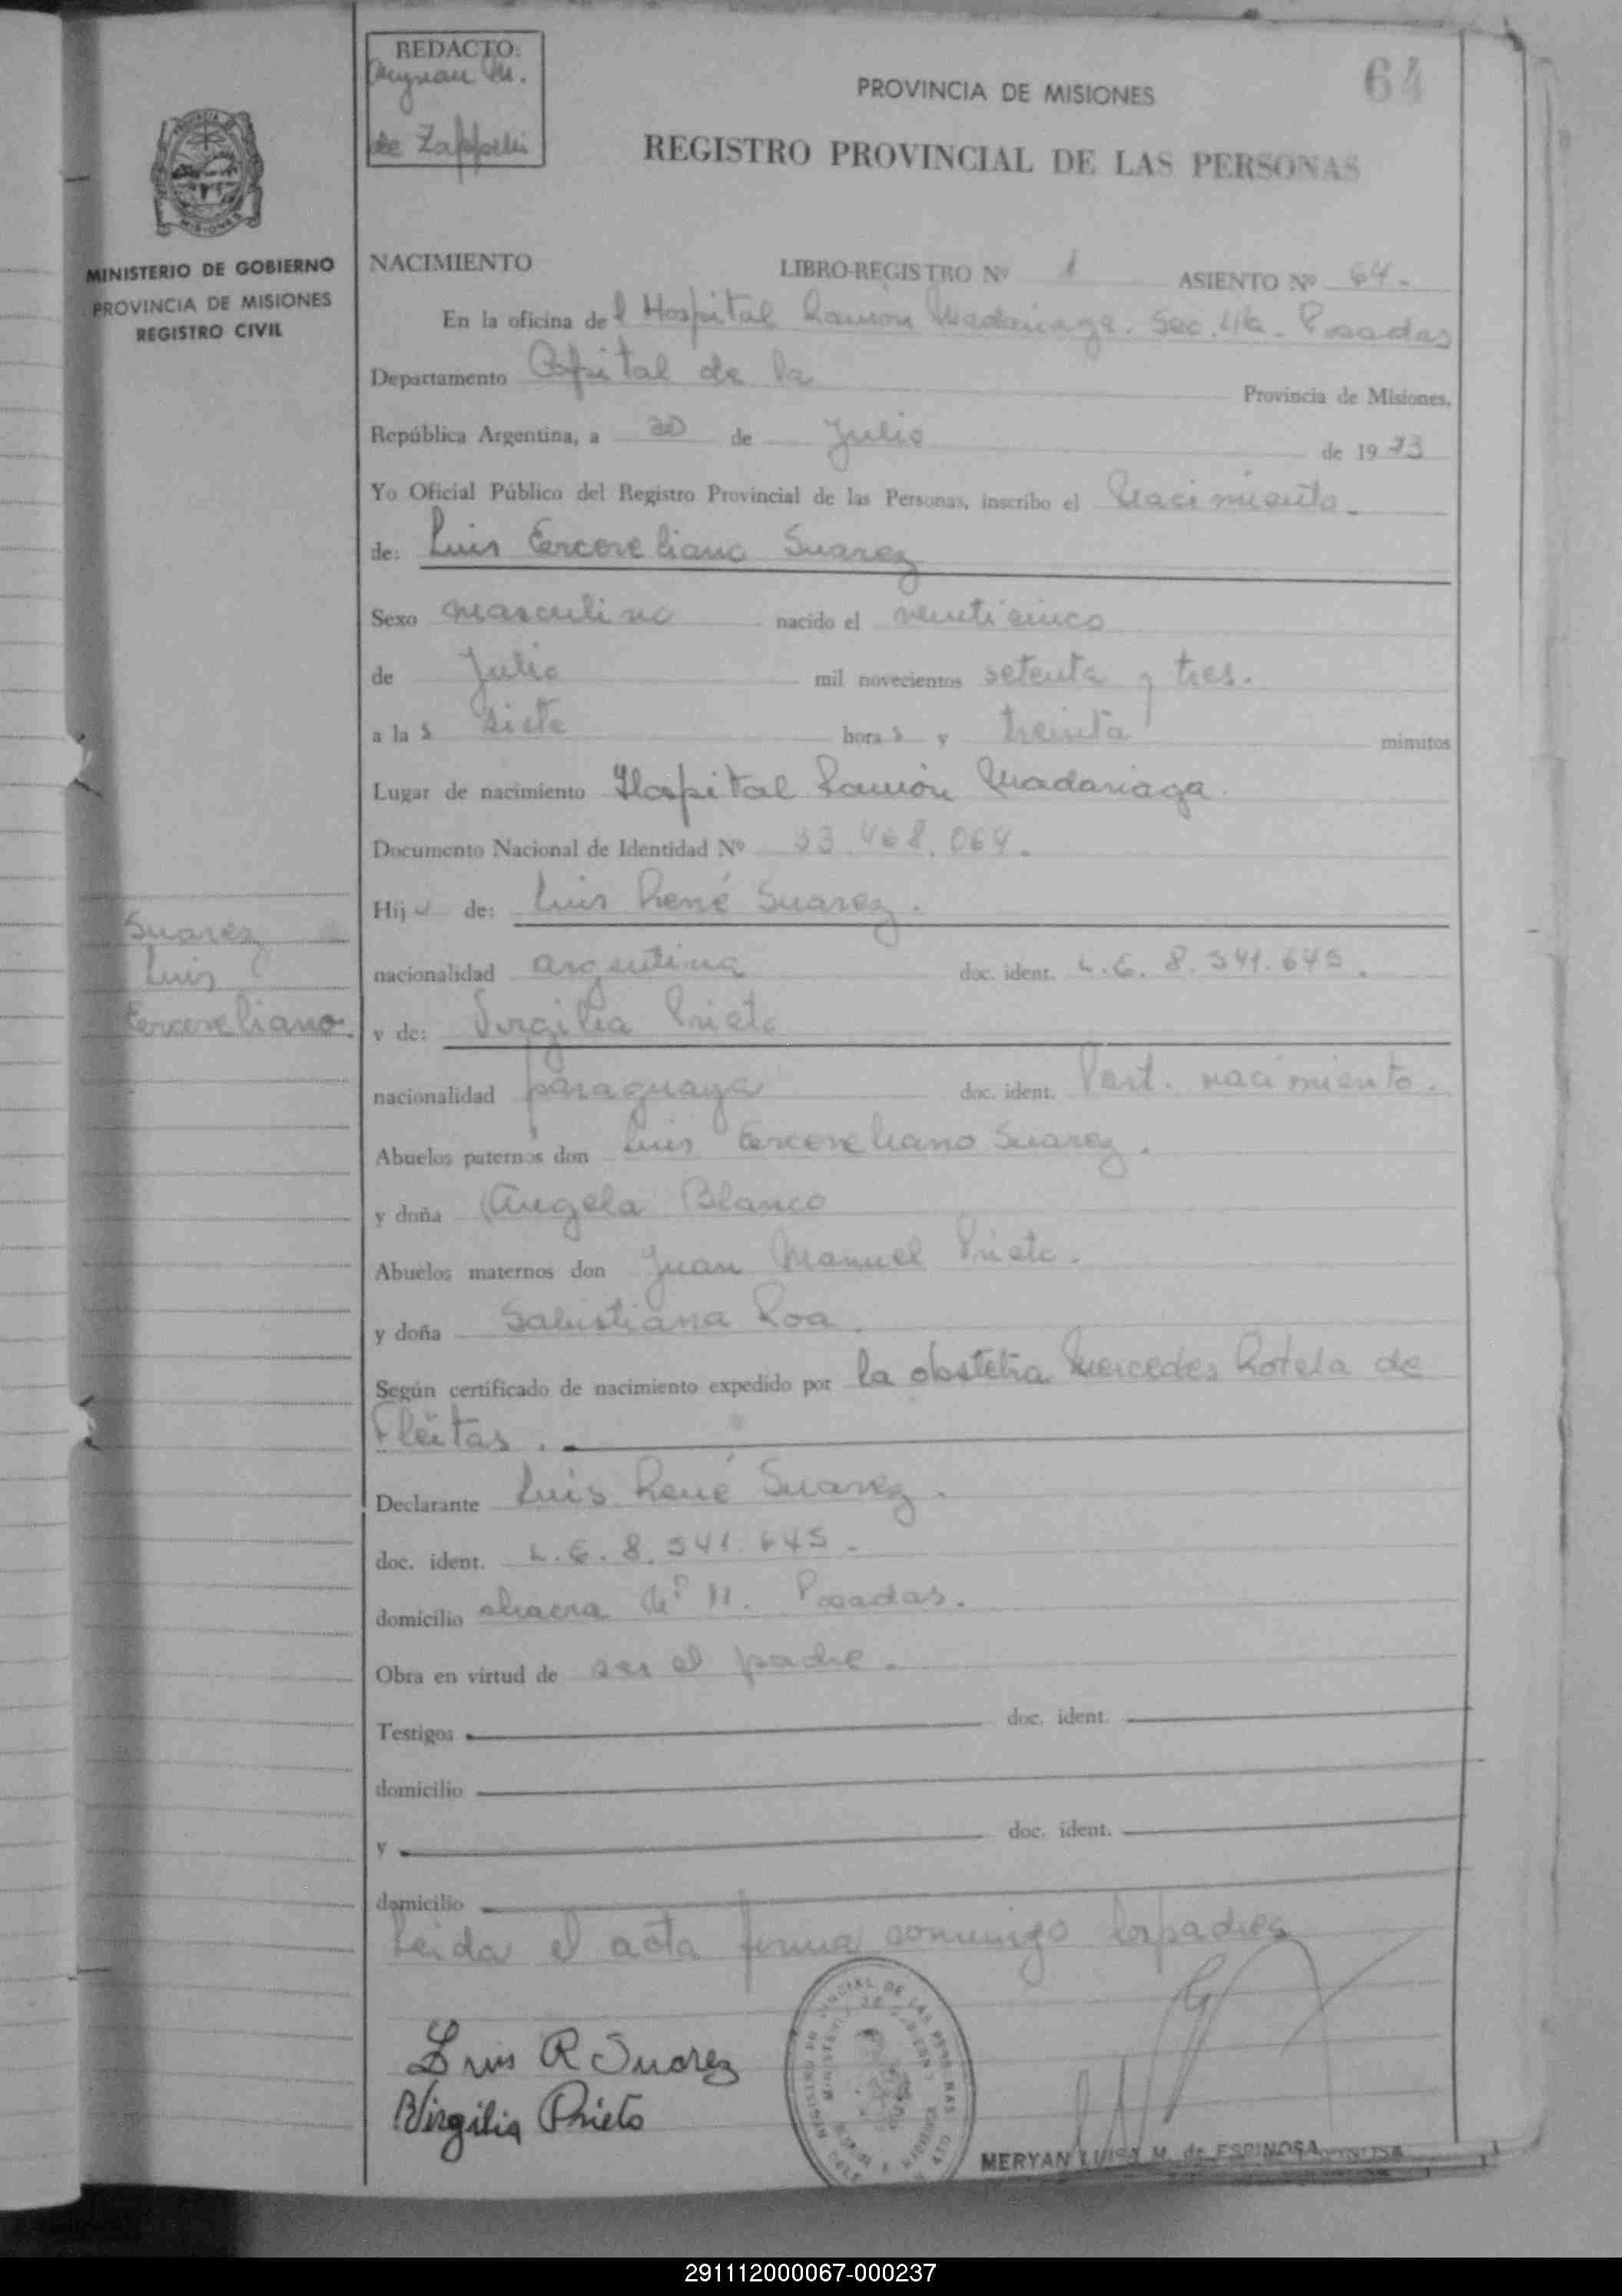 REDACTO:
de Zappelli
64
PROVINCIA DE MISIONES
REGISTRO PROVINCIAL DE LAS PERSONAS
MINISTERIO DE GOBIERNO
PROVINCIA DE MISIONES
REGISTRO CIVIL
NACIMIENTO LIBRO-REGISTRO Nº 1 ASIENTO Nº 64.
En la oficina del Hospital Ramón Madariaga. Sec. 4ta. Posadas
Departamento Capital de la Provincia de Misiones,
República Argentina, a 30 de Julio de 1973
Yo Oficial Público del Registro Provincial de las Personas, inscribo el Nacimiento.
de: Luis Cercereliano Suarez
Sexo masculino nacido el veinticinco
de Julio mil novecientos setenta y tres.
a las siete horas y treinta minutos
Lugar de nacimiento Hospital Ramón Madariaga.
Documento Nacional de Identidad Nº 23.468.064.
Hijo de: Luis René Suarez.
nacionalidad argentina doc. ident. L.E. 8.541.645.
y de: Virgilia Prieto
nacionalidad paraguaya doc. ident. Part. nacimiento.
Abuelos paternos don Luis Cercereliano Suarez.
y doña Angela Blanco
Abuelos maternos don Juan Manuel Prieto.
y doña Salustiana Roa.
Según certificado de nacimiento expedido por la obstetra Mercedes Rotela de
Fleitas.
Declarante Luis René Suarez.
doc. ident. L.E. 8.541.645.
domicilio chacra Nº 11. Posadas.
Obra en virtud de ser el padre.
Testigos doc. ident.
domicilio
y doc. ident.
domicilio
Leida el acta firma conmigo los padres
Suarez
Luis
Cercereliano.
Luis R Suarez
Virgilia Prieto
MERYAN LUISA M. de ESPINOSA
291112000067-000237